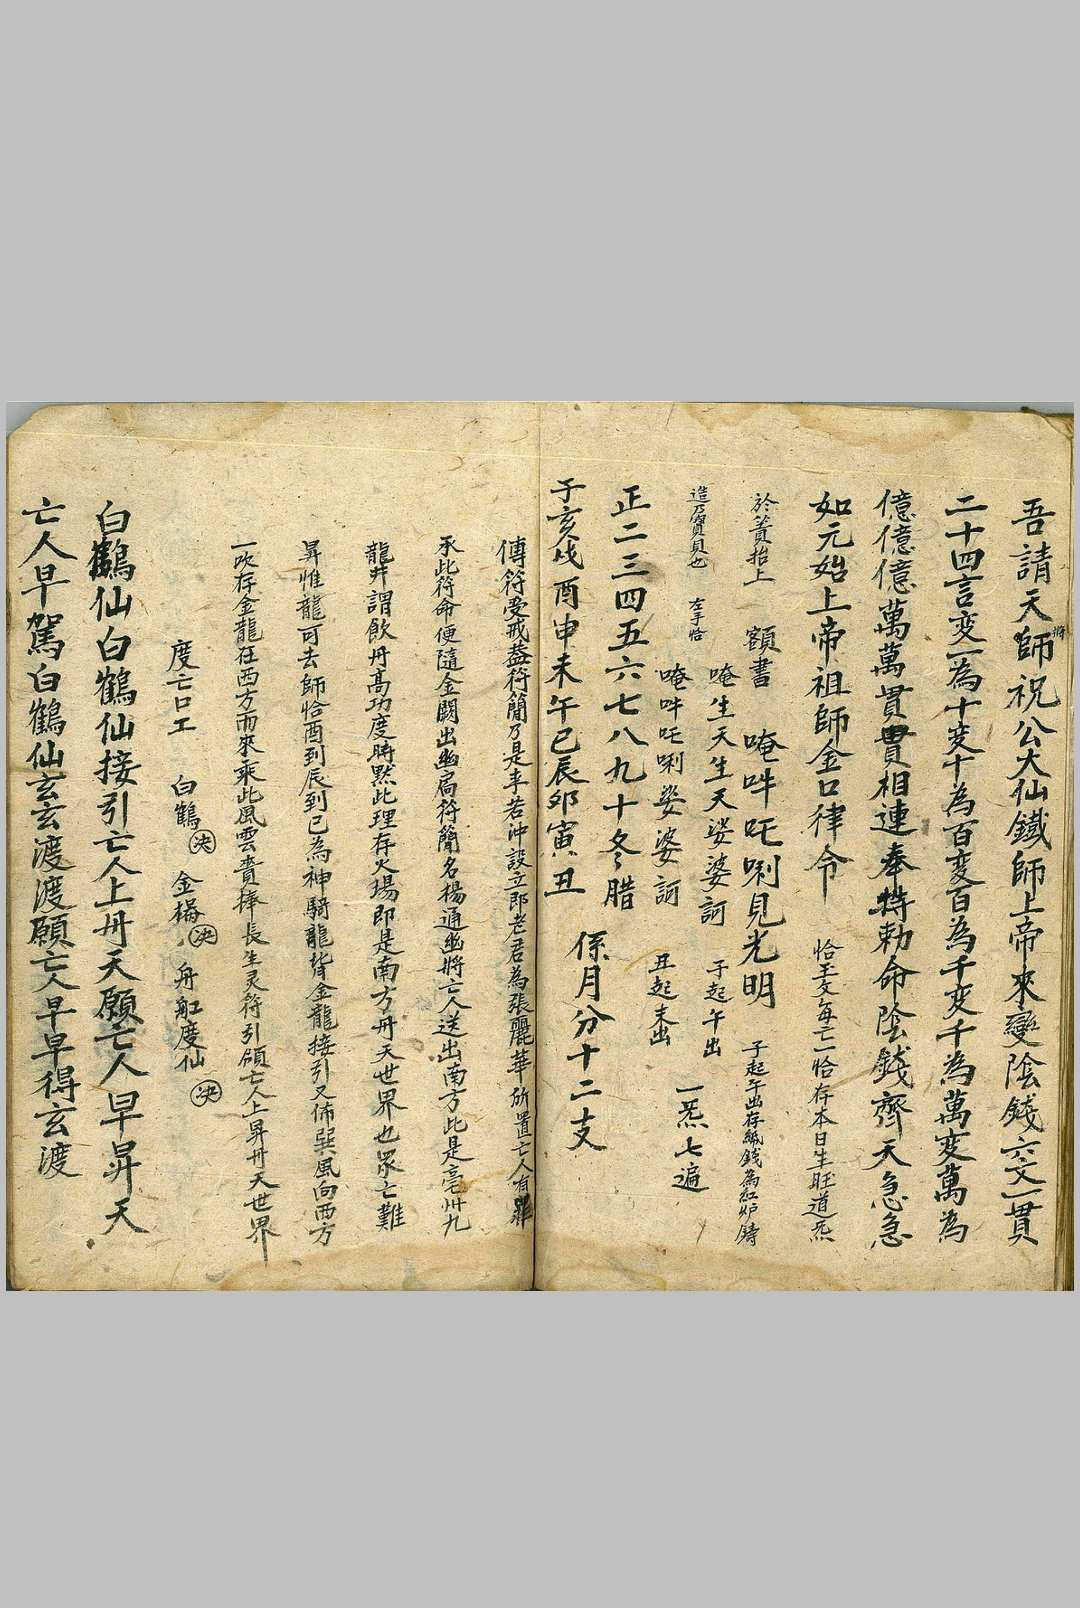 吾請天師祝公大仙鐵師上帝來變陰錢六文一貫
將
二十四言变一為十变十為百变百為千变千為萬变萬為
億億億萬萬貫貫相連奉特勅命陰錢齊天急急
如元始上帝祖師金口律令 恰玉文每亡一恰存本日生旺道炁
於簀抬上 額書 唵吽吒唎見光明 子起午出存紙錢為紅炉鑄
造乃寶貝也 左手恰 唵生天生天娑婆訶 子起午出
唵吽吒唎娑婆訶 丑起未出 一炁七遍
正二三四五六七八九十冬腊
子亥戌酉申未午巳辰夘寅丑 係月分十二支
傳符受戒葢符簡乃是李若沖設立郎老君為張麗華所置亡人有罪
承此符命便隨金闕出幽扃符簡名楊通幽將亡人送出南方此是亳卅九
龍井謂飲丹高功度時黙此理存火場即是南方丹天世界也眾亡難
昇惟龍可去師恰酉到辰到巳為神騎龍背金龍接引又佈巽風向西方
一吹存金龍在西方而來乘此風雲賫捧長生灵符引領亡人上昇丹天世界
度亡口工 白鶴決 金橋決 舟舡度仙決
白鶴仙白鶴仙接引亡人上丹天願亡人早昇天
亡人早駕白鶴仙玄玄渡渡願亡人早早得玄渡